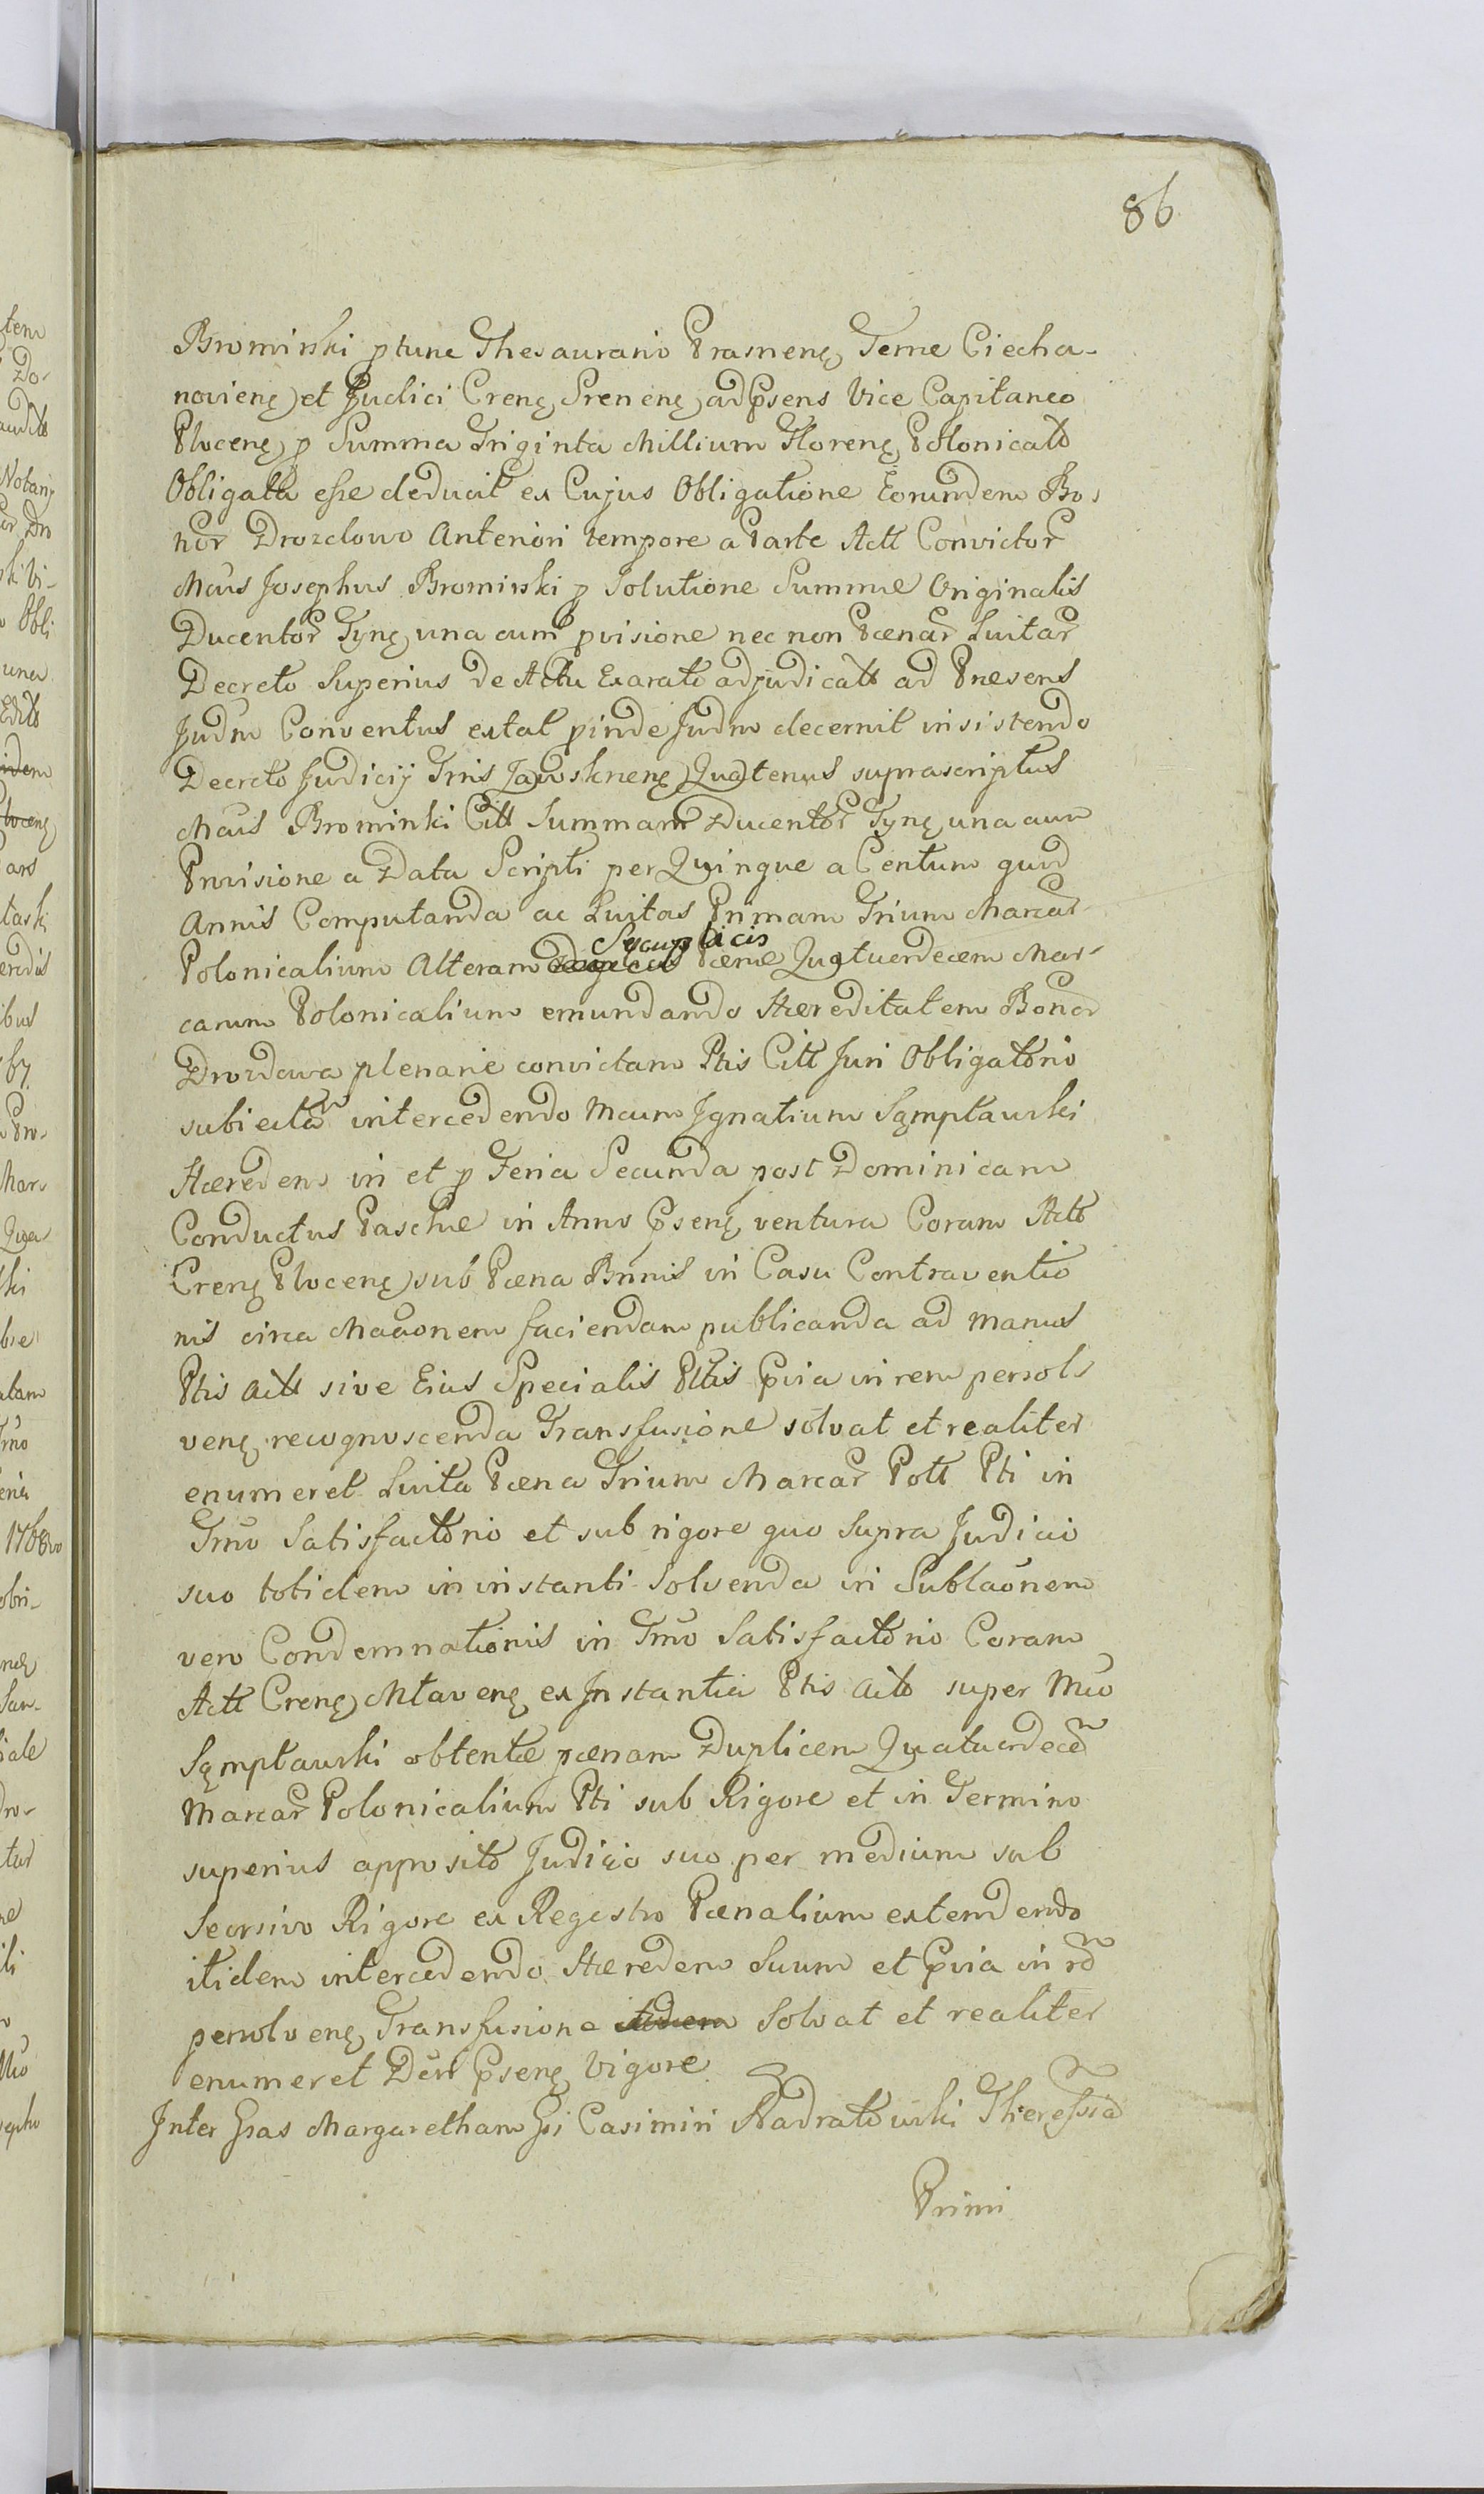 86
Brominski ptunc Thesaurario Prasnenę Terrae Ciecha-
novienę et Judici Crenę Srenenę ad Psens Vice Capitaneo
Plocenę p Summa Triginta Millium Florenę Polonicalib
Obligata esse deducit ex Cujus Obligatione Eorundem Bo-
nor Drozdowo Anteriori tempore a Parte Actt Convictor
Mcus Josephus Brominski p Solutione Summae Originalis
Ducentor Tynę una cum pvisione nec non Paenar Luitar
Decreto Superius de Actu Exarato adjudicatt ad Praesens
Judm Conventus extat pinde Judm decernit insistendo
Decreto Judicij Trris Zawskrnenę Quatenus suprascriptus
Mcus Brominski Citt Summam Ducentor Tynę una cum
Provisione a Data Scripti per Quinque a Centum quod
Annis Computanda ac Luitas Primam Trium Marcar
Polonicalium Alteram Sycuplicis Paenae Quatuordecem Mar-
carum Polonicalium emundando Haereditatem Bonor
Drozdowa plenarie convictam Ptis Citt Juri Obligatorio
subiecta intercedendo Mcum Ignatium Sęmptawski
Haeredem in et p Feria Secunda post Dominicam
Conductus Paschae in Anno Psenę ventura Coram Actt
Crenę Plocenę sub Paena Bnnis in Casu Contraventio
nis circa Macionem faciendam publicanda ad Manus
Ptis Actt sive Eius Specialis Pttis Pvia in rem persol-
venę recognoscenda Transfusione solvat et realiter
enumeret Luita Paena Trium Marcar Pott Pti in
Trno Satisfactorio et sub rigore quo Supra Judicio
suo totidem in instanti Solvenda in Sublaonem
vero Condemnationis in Tmo Satisfactorio Coram
Actt Crenę Mtavenę ex Instantia Ptis Actt super Mco
Sęmptawski obtentae paenam Duplicem Quatuordece
Marcar Polonicalium Pti sub Rigore et in Termino
superius apposito Judicio suo per medium sub
Seorsivo Rigore ex Regestro Paenalium extendendo
itidem intercedendo Haeredem Suum et Pvia in re
persolvenę Transfusione itidem Solvat et realiter
enumeret Dcti Psenę Vigore
Inter Gsas Margaretham Gsi Casimiri Nadratowski Theressia
Primi